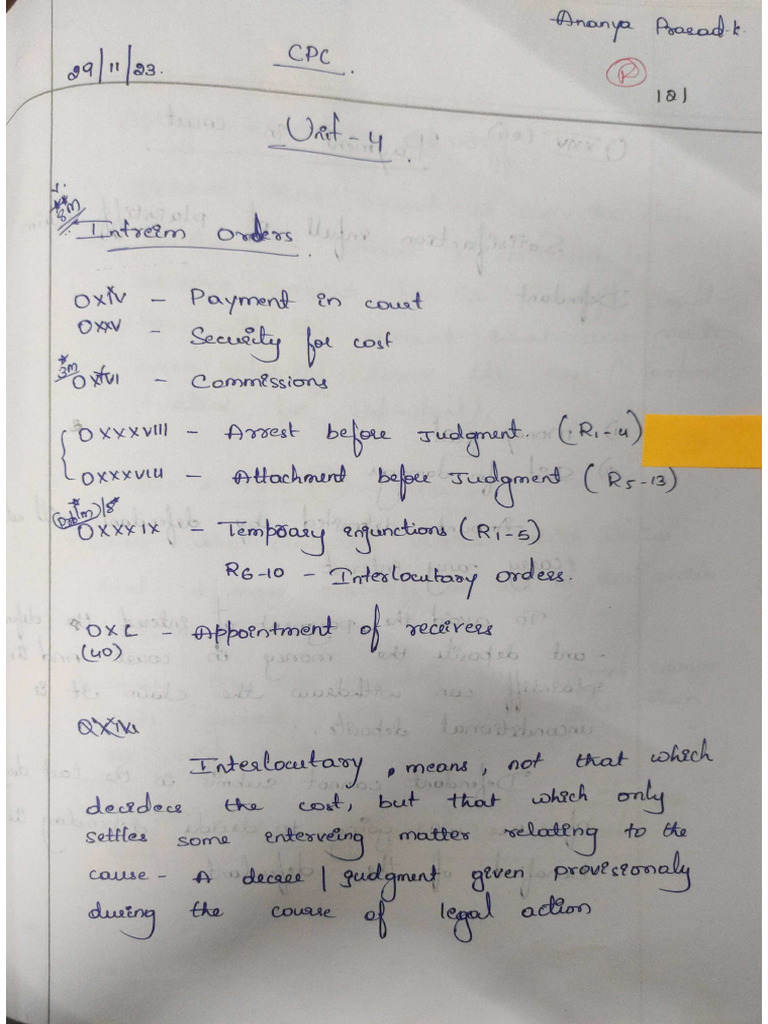 Ananya Prasad.k.
29/11/23.
CPC
R
121
Unit - 4
**
8m
Intreim orders
OXXIV - Payment in court
OXXV - Security for cost
*
3m
OXXVI - Commissions
OXXXVIII - Arrest before Judgment. (R1-4)
OXXXVIII - Attachment before Judgment (R5-13)
OXXXIX - Temporary injunctions (R1-5)
R6-10 - Interlocutary orders.
OXL - Appointment of receivers
(40)
Interlocutary, means, not that which
decideces the cost, but that which only
settles some enterveing matter relating to the
cause - A decree / judgment given provisionaly
during the course of legal action